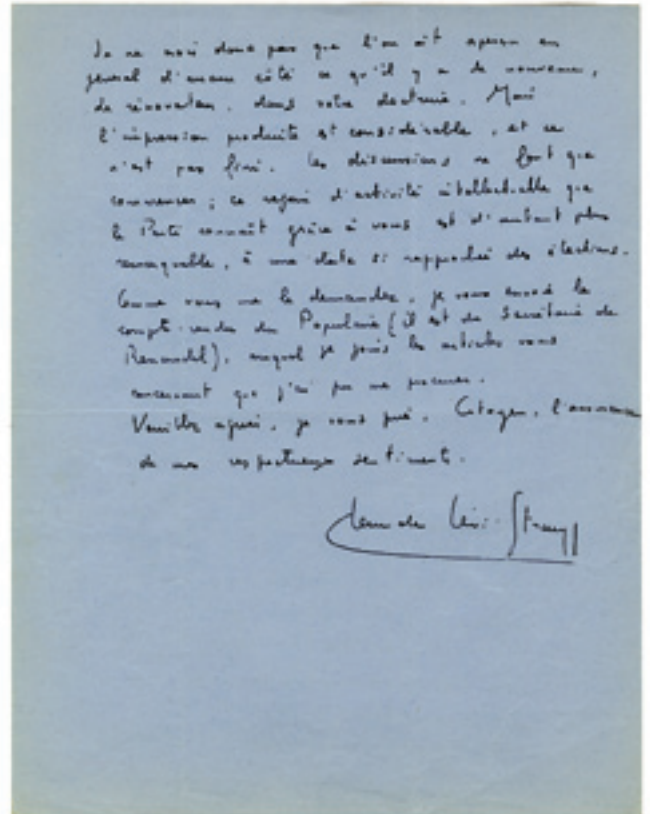 Je ne crois donc pas que l'on ait aperçu en
général d'aucun côté ce qu'il y a de nouveau,
de rénovateur, dans votre doctrine. Mais
l'impression produite est considérable, et ce
n'est pas fini. Les discussions ne font que
commencer ; ce regain d'activité intellectuelle que
le Parti connaît grâce à vous est d'autant plus
remarquable, à une date si rapprochée des élections.
Comme vous me le demandez, je vous envoie le
compte-rendu du Populaire (il est du Secrétaire de
Renaudel), auquel je joins les articles vous
concernant que j'ai pu me procurer.
Veuillez agréer, je vous prie, Citoyen, l'assurance
de mes respectueux sentiments.
Claude Lévi-Strauss